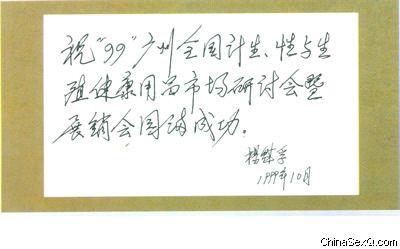 祝"99"广州全国计生、性与生
殖健康用品市场研讨会暨
展销会圆满成功。
1999年10月
ChinaSexQ.com